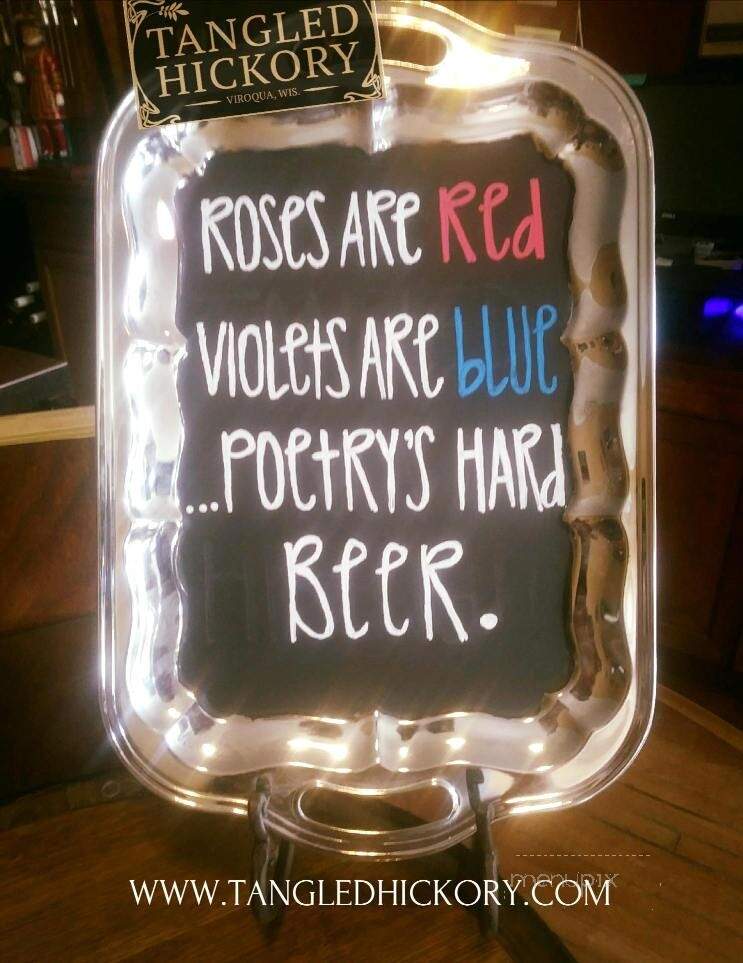 TANGLED
HICKORY
VIROQUA, WIS.
ROSES ARE Red
VIOLetS ARE bLUe
...POetRY'S HARd
BeeR.
menupix
WWW.TANGLEDHICKORY.COM